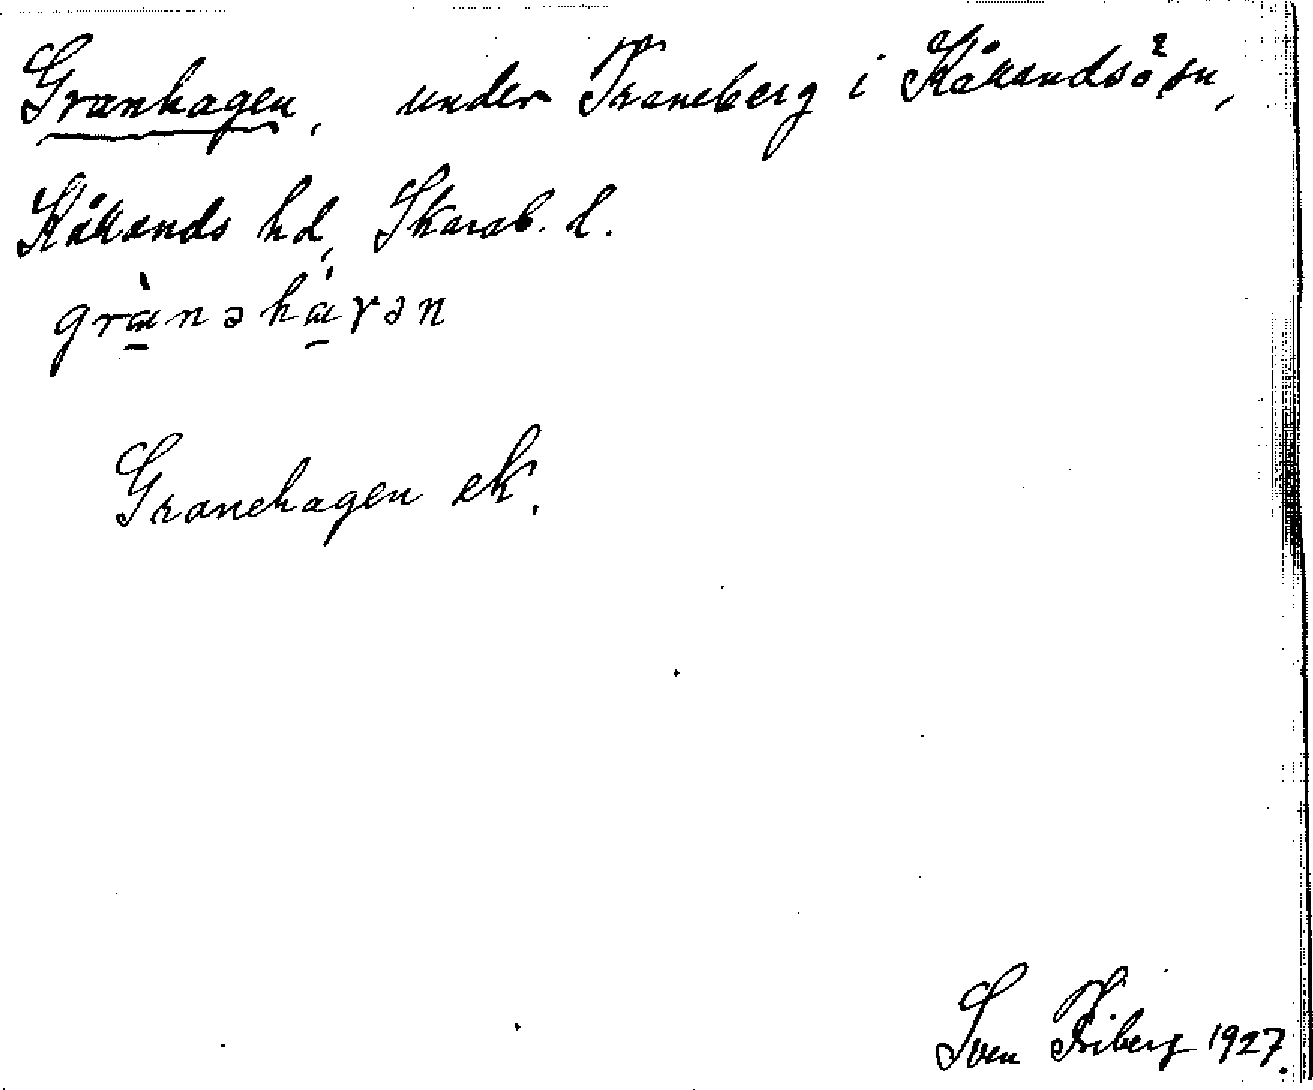 Granhagen, under Traneberg i Kållandsö sn,
Kållands hd, Skarab. l.
grànəháɣən
Granehagen ek.
Sven Friberg 1927.